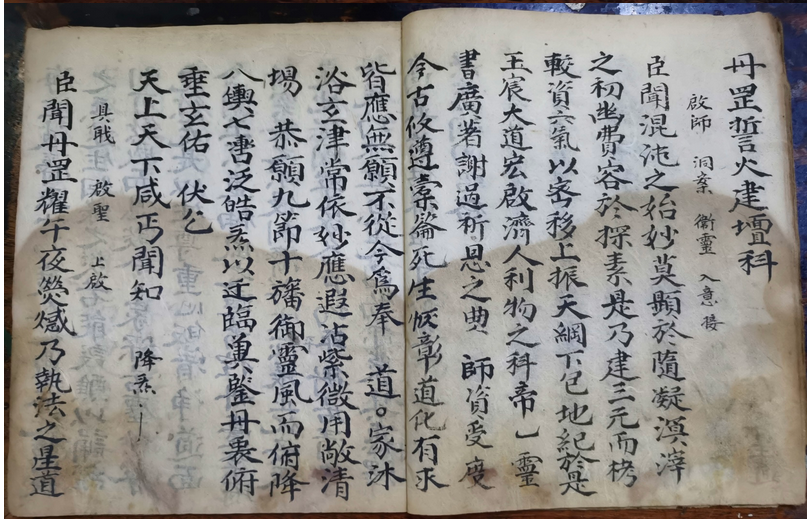 丹罡誓火建壇科
啟師 洞案 衛靈 入意接
臣聞混沌之始妙莫顯於隨凝溟涬
之初幽費容於探素是乃建三元而栲
較資六氣以密移上振天綱下包地紀於是
玉宸大道宏啟濟人利物之科帝一靈
書廣著謝過祈恩之典 師資受度
今古攸遵橐籥死生恢彰道化有求
皆應無願不從今為奉 道。家沐
浴玄津常依妙應遐沾紫微用敞清
場 恭願九節十旛御靈風而俯降
八輿七書泛皓炁以迂臨冀鑒丹衷俯
垂玄佑 伏乞
天上天下咸丐聞知 降炁
具職 啟聖 上啟
臣聞丹罡耀午夜熒煌乃執法之星道